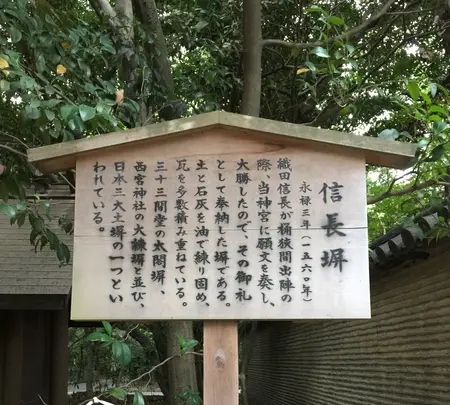 信長塀
永禄三年（一五六〇年）
織田信長が桶狭間出陣の
際、当神宮に願文を奏し、
大勝したので、その御礼
として奉納した塀である。
土と石灰を油で練り固め、
瓦を多数積み重ねている。
三十三間堂の太閤塀、
西宮神社の大練塀と並び、
日本三大土塀の一つとい
われている。